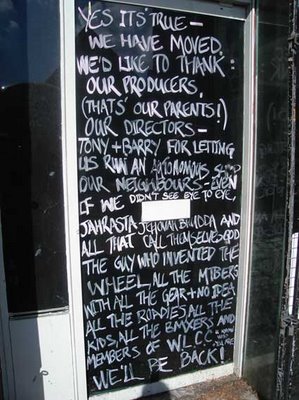 YES IT'S TRUE –
WE HAVE MOVED.
WE'D LIKE TO THANK:
OUR PRODUCERS,
(THATS' OUR PARENTS!)
OUR DIRECTORS –
TONY + BARRY FOR LETTING
US RUN AN AUTONOMOUS SHOP
OUR NEIGHBOURS – EVEN
IF WE DIDN'T SEE EYE TO EYE,
JAHRASTA JEHOVAH BUDDA AND
ALL THAT CALL THEMSELVES GOD
THE GUY WHO INVENTED THE
WHEEL, ALL THE MTBERS
WITH ALL THE GEAR + NO IDEA
ALL THE ROADIES, ALL THE
KIDS, ALL THE BMXERS AND
MEMBERS OF W.L.C.C.
WE'LL BE BACK!